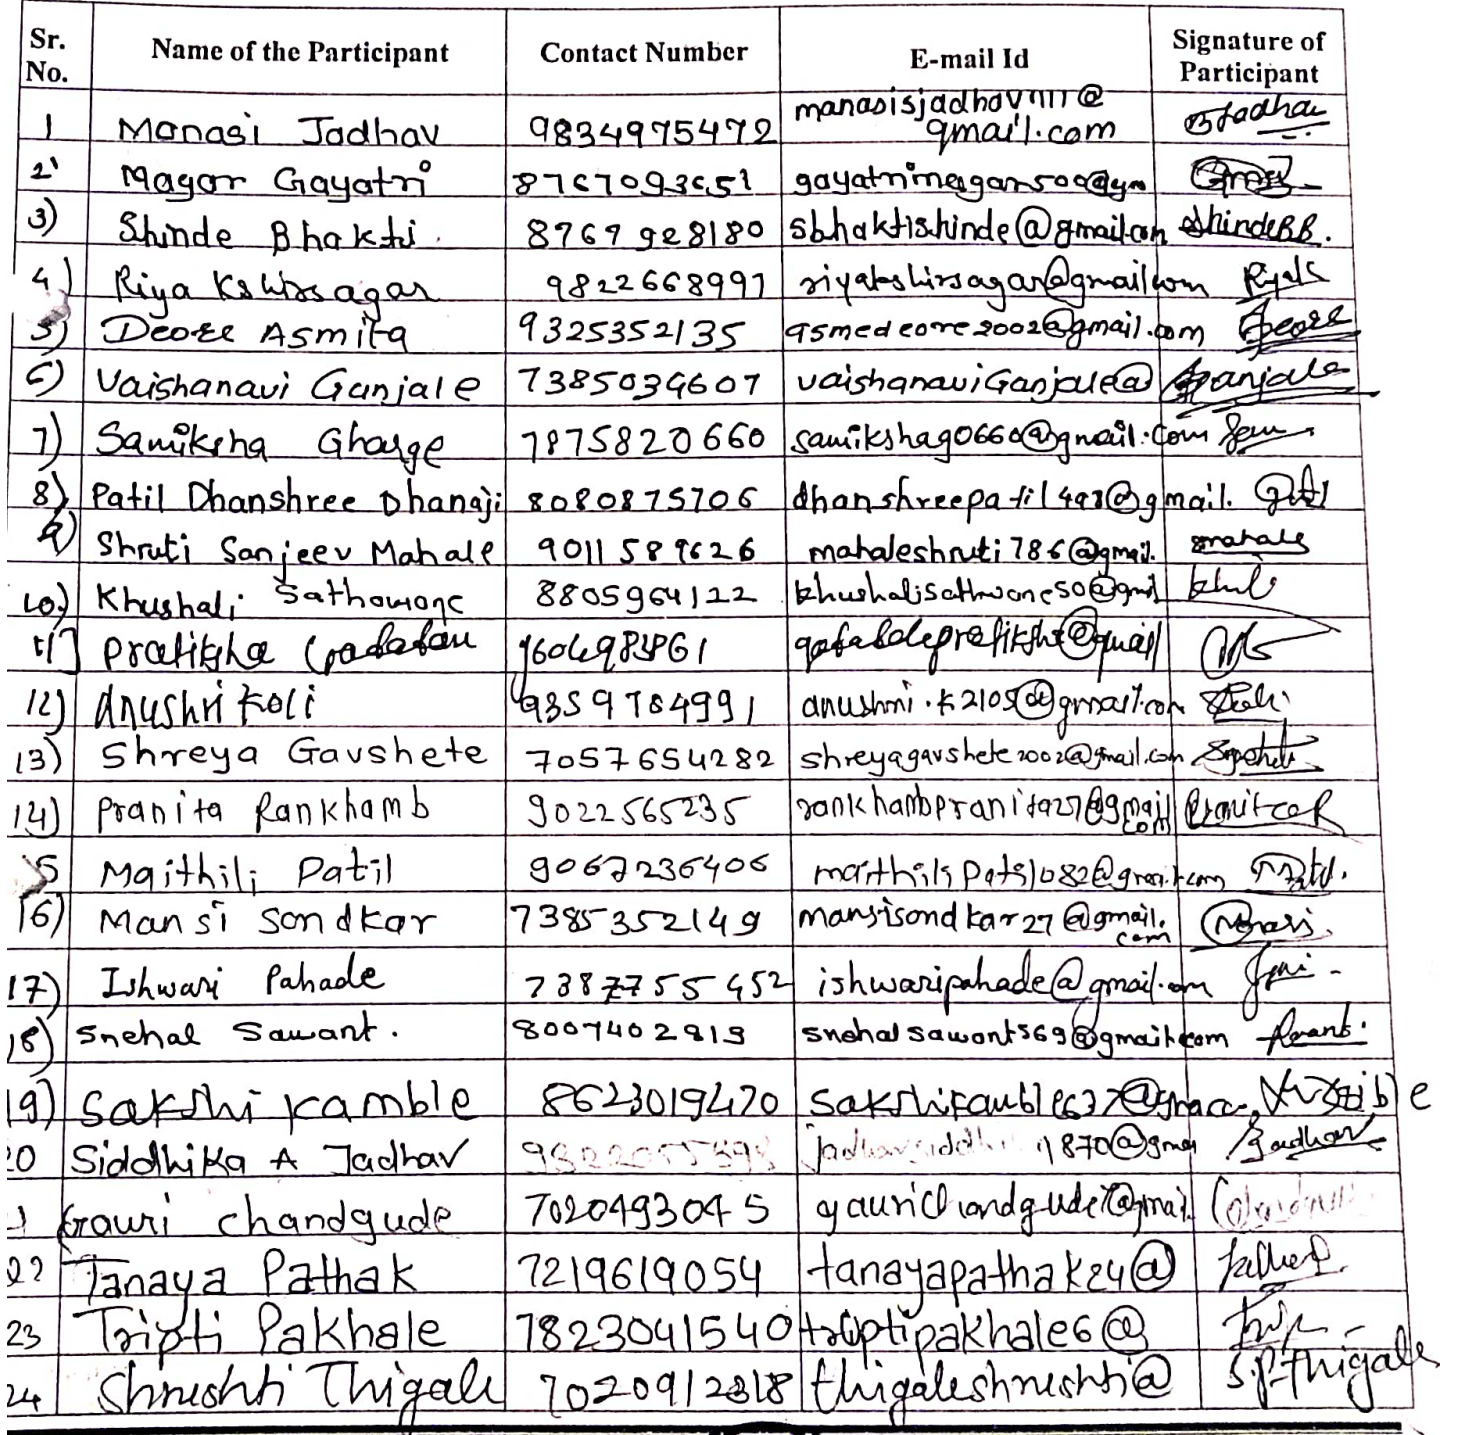 Sr. No. Name of the Participant Contact Number E-mail Id Signature of Participant
1 Manasi Jadhav 9834975472 manasisjadhav1111@gmail.com Jadhav
2 Magar Gayatri 8767093651 gayatrimagar500@gm
3) Shinde Bhakti 8767928180 sbhaktishinde@gmail.com ShindeBB.
4) Riya Kshirsagar 9822668997 riyakshirsagar@gmail.com RiyaK
5) Deore Asmita 9325352135 asmedeore2002@gmail.com Deore
6) Vaishanavi Ganjale 7385034607 vaishanaviGanjale@ Ganjale
7) Samiksha Gharge 7875820660 samikshag0660@gmail.com Sam
8) Patil Dhanshree Dhanaji 8080875706 dhanshreepatil498@gmail.
9) Shruti Sanjeev Mahale 9011589626 mahaleshruti786@gmail. mahale
10) Khushali Sathawane 8805964122 khushalisathwane50@gmil
11] Pratiksha @gmail
12) Anushri Koli 9359784991 anushri.k2105@gmail.com Koli
13) Shreya Gavshete 7057654282 shreyagavshete2002@gmail.com
14) Pranita Rankhamb 9022565235 rankhambpranita27@gmail.com PranitaR
15 Maithili Patil 9067236406 maithilipatil082@gmail.com
16) Mansi Sondkar 7385352149 mansisondkar27@gmail.com Mansi
17) Ishwari Pahade 7387755452 ishwaripahade@gmail.com
18) Snehal Sawant. 8007402919 snehalsawant569@gmail.com
19) Sakshi Kamble 8623019470
20 Siddhika A Jadhav 1870@gmai Jadhav
1 Gauri Chandgude 7020493045 gaurichandgude7@gmail.
22 Tanaya Pathak 7219619054 tanayapathak24@
23 Tripti Pakhale 7823041540 triptipakhale6@
24 Shrushti Thigale 7020912318 thigaleshrushti@ S.P.Thigale